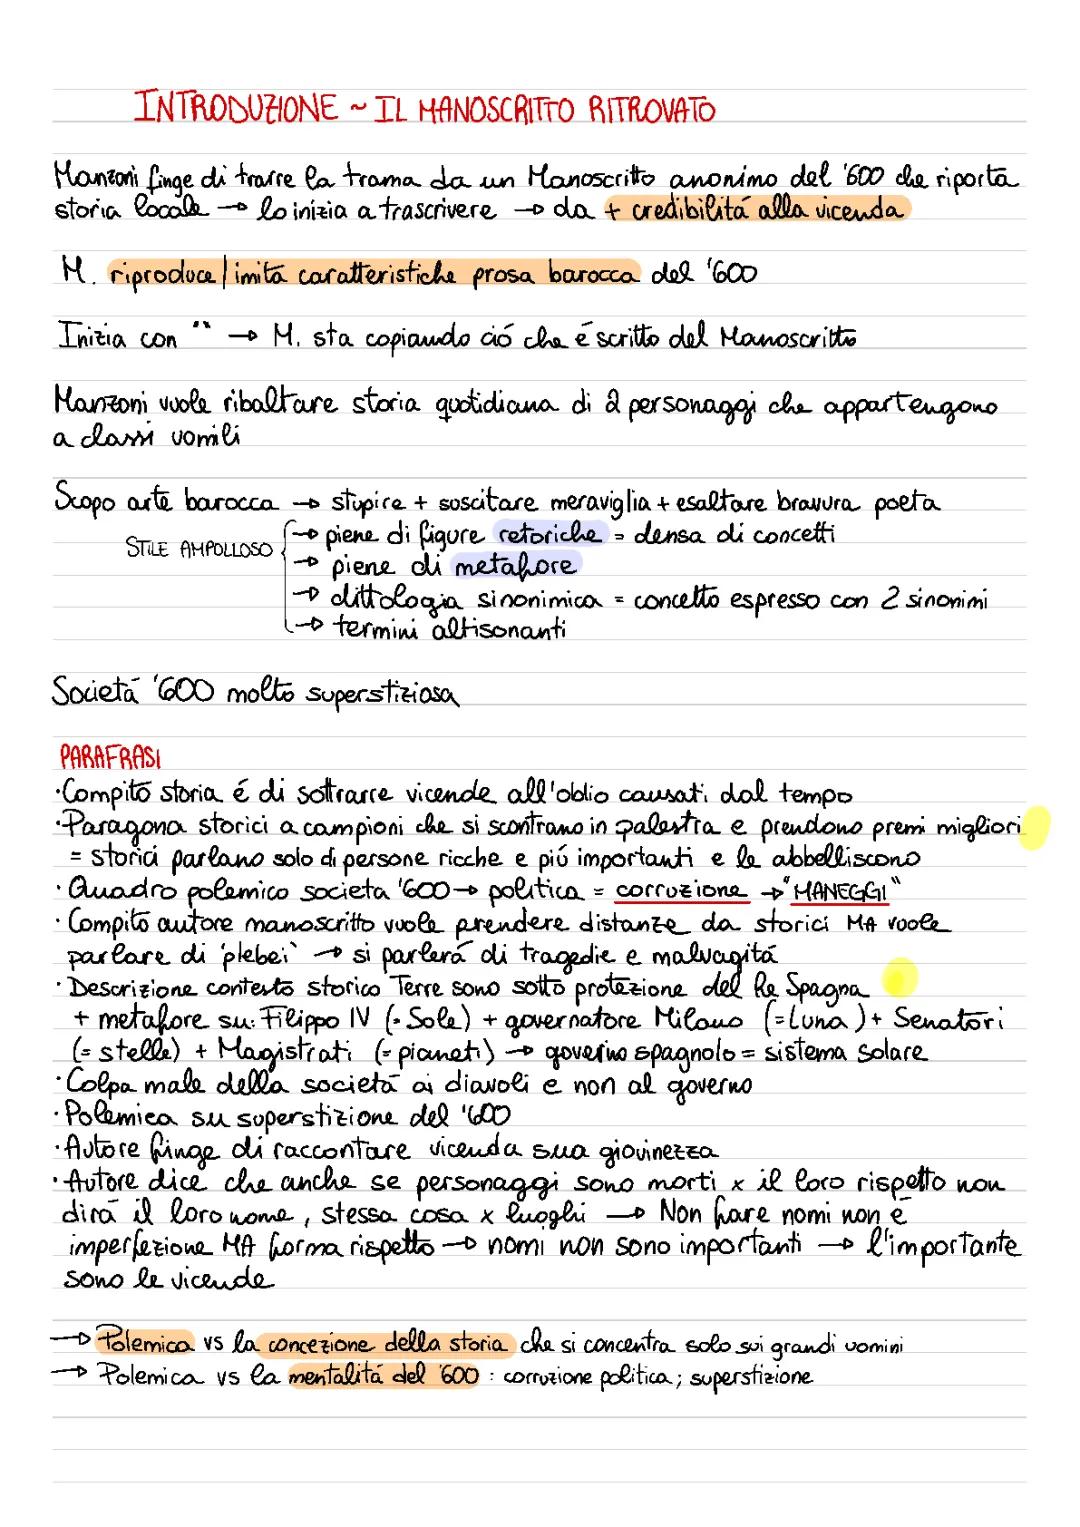 INTRODUZIONE ~ IL MANOSCRITTO RITROVATO
Manzoni finge di trarre la trama da un Manoscritto anonimo del '600 che riporta
storia locale → lo inizia a trascrivere → da + credibilitá alla vicenda
M. riproduce/imita caratteristiche prosa barocca del '600
Inizia con " → M. sta copiando ció che é scritto del Manoscritto
Manzoni vuole ribaltare storia quotidiana di 2 personaggi che appartengono
a classi uomili
Scopo arte barocca → stupire + suscitare meraviglia + esaltare bravura poeta
STILE AMPOLLOSO { → piene di figure retoriche = densa di concetti
→ piene di metafore
→ dittologia sinonimica = concetto espresso con 2 sinonimi
→ termini altisonanti
Societá '600 molto superstiziosa
PARAFRASI
·Compito storia é di sottrarre vicende all'oblio causati dal tempo
·Paragona storici a campioni che si scontrano in palestra e prendono premi migliori
= storici parlano solo di persone ricche e piú importanti e le abbelliscono
·Quadro polemico societa '600 → politica = corruzione → "MANEGGI"
·Compito autore manoscritto vuole prendere distanze da storici MA vuole
parlare di 'plebei' → si parlerá di tragedie e malvagitá
·Descrizione contesto storico Terre sono sotto protezione del Re Spagna
+ metafore su: Filippo IV (= Sole) + governatore Milano (= Luna) + Senatori
(= stelle) + Magistrati (= pianeti) → governo spagnolo = sistema solare
·Colpa male della societá ai diavoli e non al governo
·Polemica su superstizione del '600
·Autore finge di raccontare vicenda sua giovinezza
·Autore dice che anche se personaggi sono morti x il loro rispetto non
dirá il loro nome, stessa cosa x luoghi → Non fare nomi non é
imperfezione MA forma rispetto → nomi non sono importanti → l'importante
sono le vicende
→ Polemica vs la concezione della storia che si concentra solo sui grandi uomini
→ Polemica vs la mentalitá del '600 : corruzione politica; superstizione